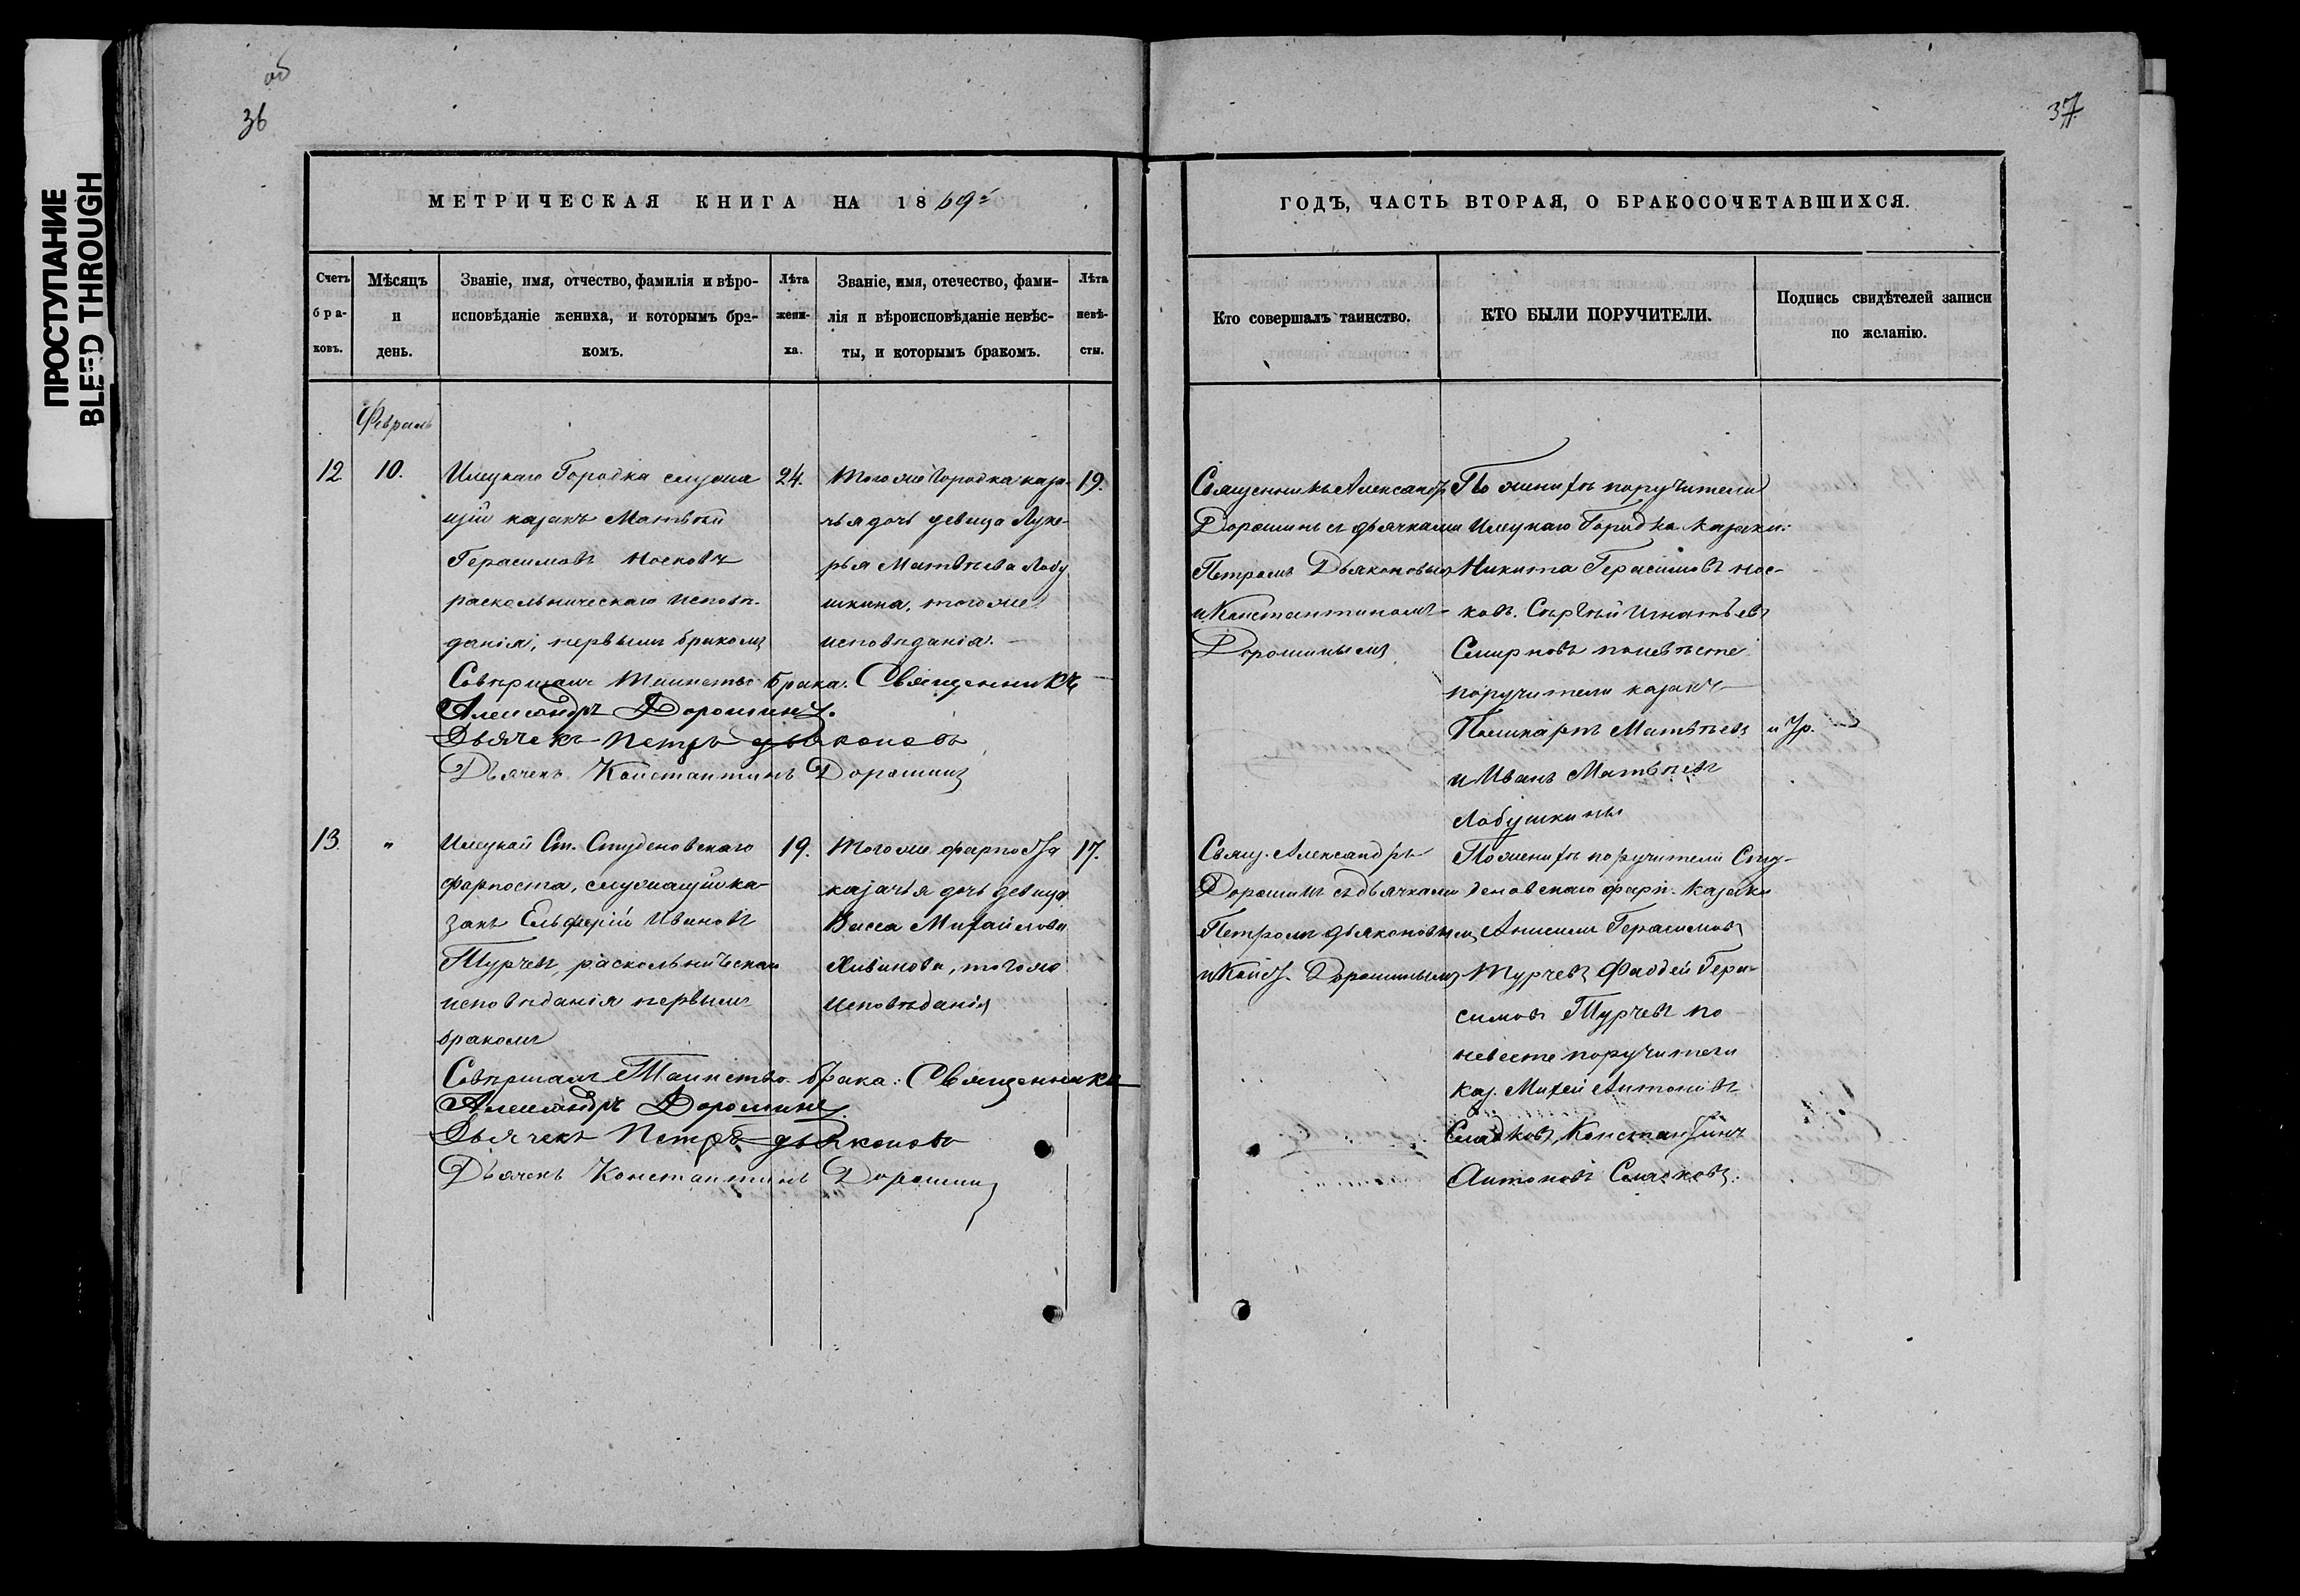 ПРОСТУПАНИЕ
BLEED THROUGH
об
36
37
МЕТРИЧЕСКАЯ КНИГА НА 1869г
ГОДЪ, ЧАСТЬ ВТОРАЯ, О БРАКОСОЧЕТАВШИХСЯ.
Счетъ браковъ.
Мѣсяцъ и день.
Званіе, имя, отчество, фамилія и вѣроисповѣданіе жениха, и которымъ бракомъ.
Лѣта жениха.
Званіе, имя, отечество, фамилія и вѣроисповѣданіе невѣсты, и которымъ бракомъ.
Лѣта невѣсты.
Кто совершалъ таинство.
КТО БЫЛИ ПОРУЧИТЕЛИ.
Подпись свидѣтелей записи по желанію.
Февраль
12
10.
Илецкаго Городка служа
щій казакъ Матвѣй
Герасимовъ Носковъ
раскольническаго исповѣ-
данія, первымъ бракомъ
24.
Того же Городка каза-
чья дочь девица Луке-
рья Матвѣева Лобу
шкина, того же
исповѣданія.
19.
Совершалъ Таинство Брака: Священникъ
Александръ Дорошинъ.
Дьячекъ Петръ Дьяконовъ
Дьячекъ Константинъ Дорошинъ
Священникъ Александръ
Дорошинъ с дьячками
Петромъ Дьяконовымъ
и Константиномъ
Дорошинымъ
По женихѣ поручители
Илецкаго Городка казаки:
Никита Герасимовъ Нос-
ковъ. Сергѣй Игнатьевъ
Смирновъ по невѣсте
поручители казаки
Поликарпъ Матвѣевъ
и Иванъ Матвѣевъ
Лобушкины
13.
"
Илецкой Ст. Студеновскаго
форпоста, служащій ка-
закъ Елѳферій Ивановъ
Турчевъ, раскольническаго
исповѣданія первымъ
бракомъ
19.
Того же форпоста
казачья дочь девица
Васса Михайлова
Хивинова, того же
исповѣданія
17.
Совершалъ Таинство брака: Священникъ
Александръ Дорошинъ
Дьячекъ Петръ Дьяконовъ
Дьячекъ Константинъ Дорошинъ
Свящ. Александръ
Дорошинъ съ дьячками
Петромъ Дьяконовымъ
и Конст. Дорошинымъ
По женихѣ поручители Сту-
деновскаго форп. казаки
Анисимъ Герасимовъ
Турчевъ Фаддей Гера-
симовъ Турчевъ по
невесте поручители
каз. Михей Антоновъ
Сладковъ, Константинъ
Антоновъ Сладковъ.